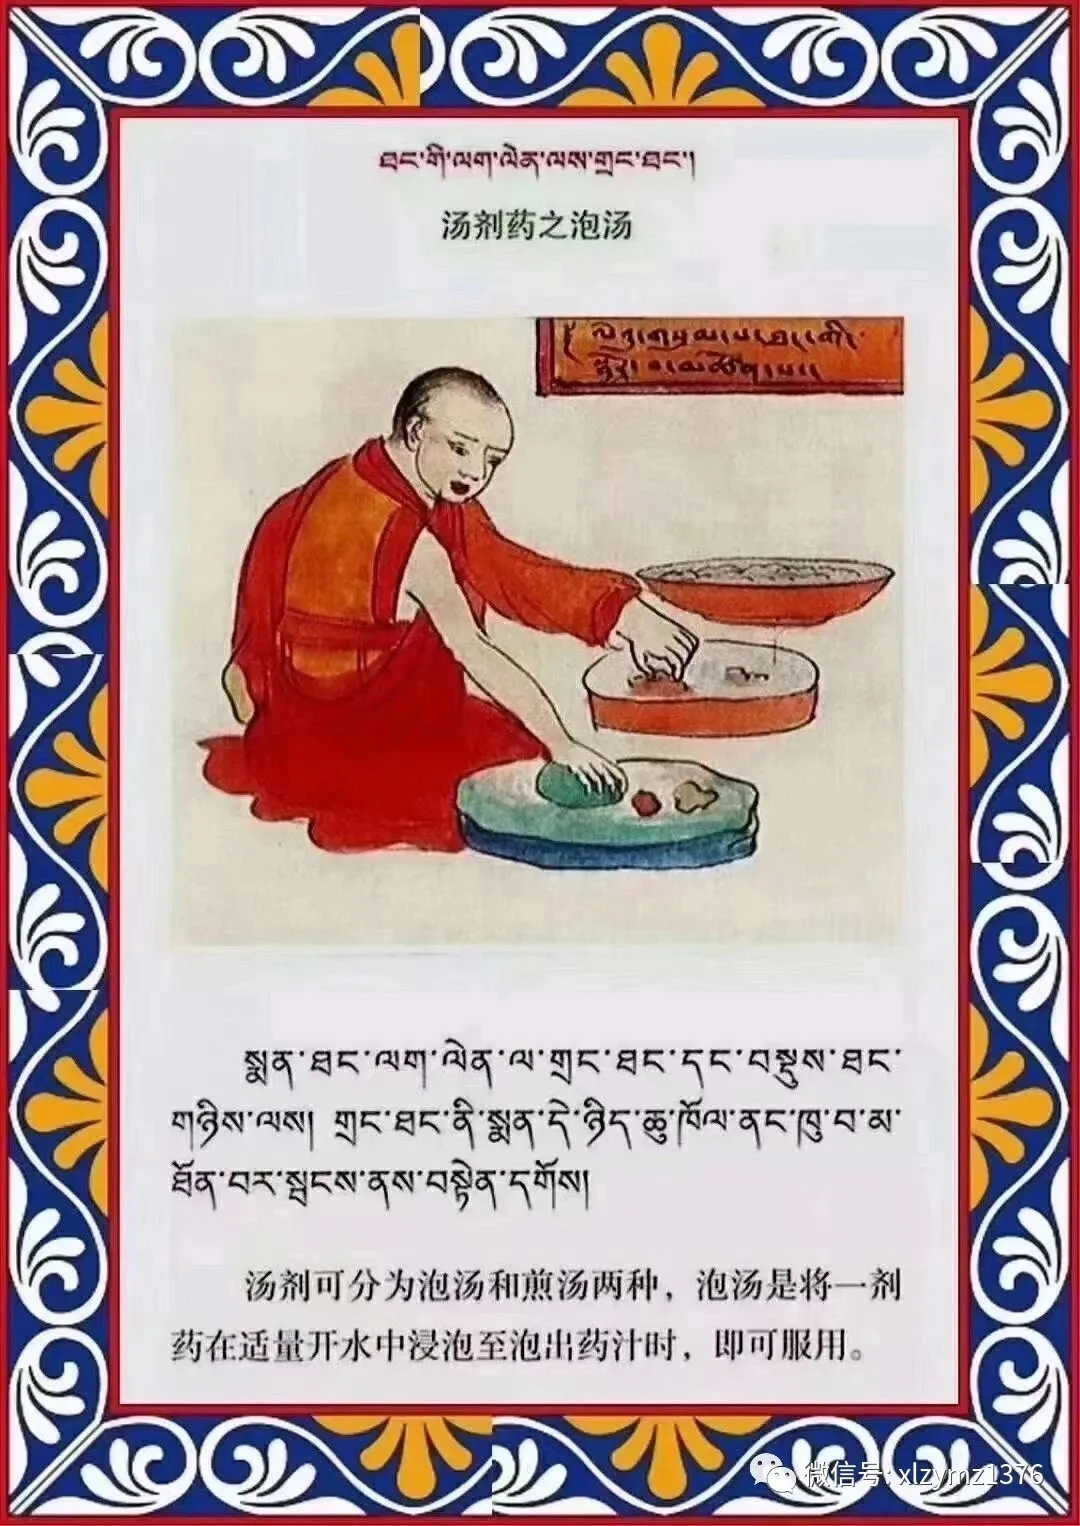 ཐང་གི་ལག་ལེན་ལས་གྲང་ཐང་།
汤剂药之泡汤
སྨན་ཐང་ལག་ལེན་ལ་གྲང་ཐང་དང་བསྡུས་ཐང་
གཉིས་ལས། གྲང་ཐང་ནི་སྨན་དེ་ཉིད་ཆུ་ཁོལ་ནང་ཁུ་བ་མ་
ཐོན་བར་སྦངས་ནས་བསྟེན་དགོས།
汤剂可分为泡汤和煎汤两种，泡汤是将一剂
药在适量开水中浸泡至泡出药汁时，即可服用。
微信号: xlzymz1376